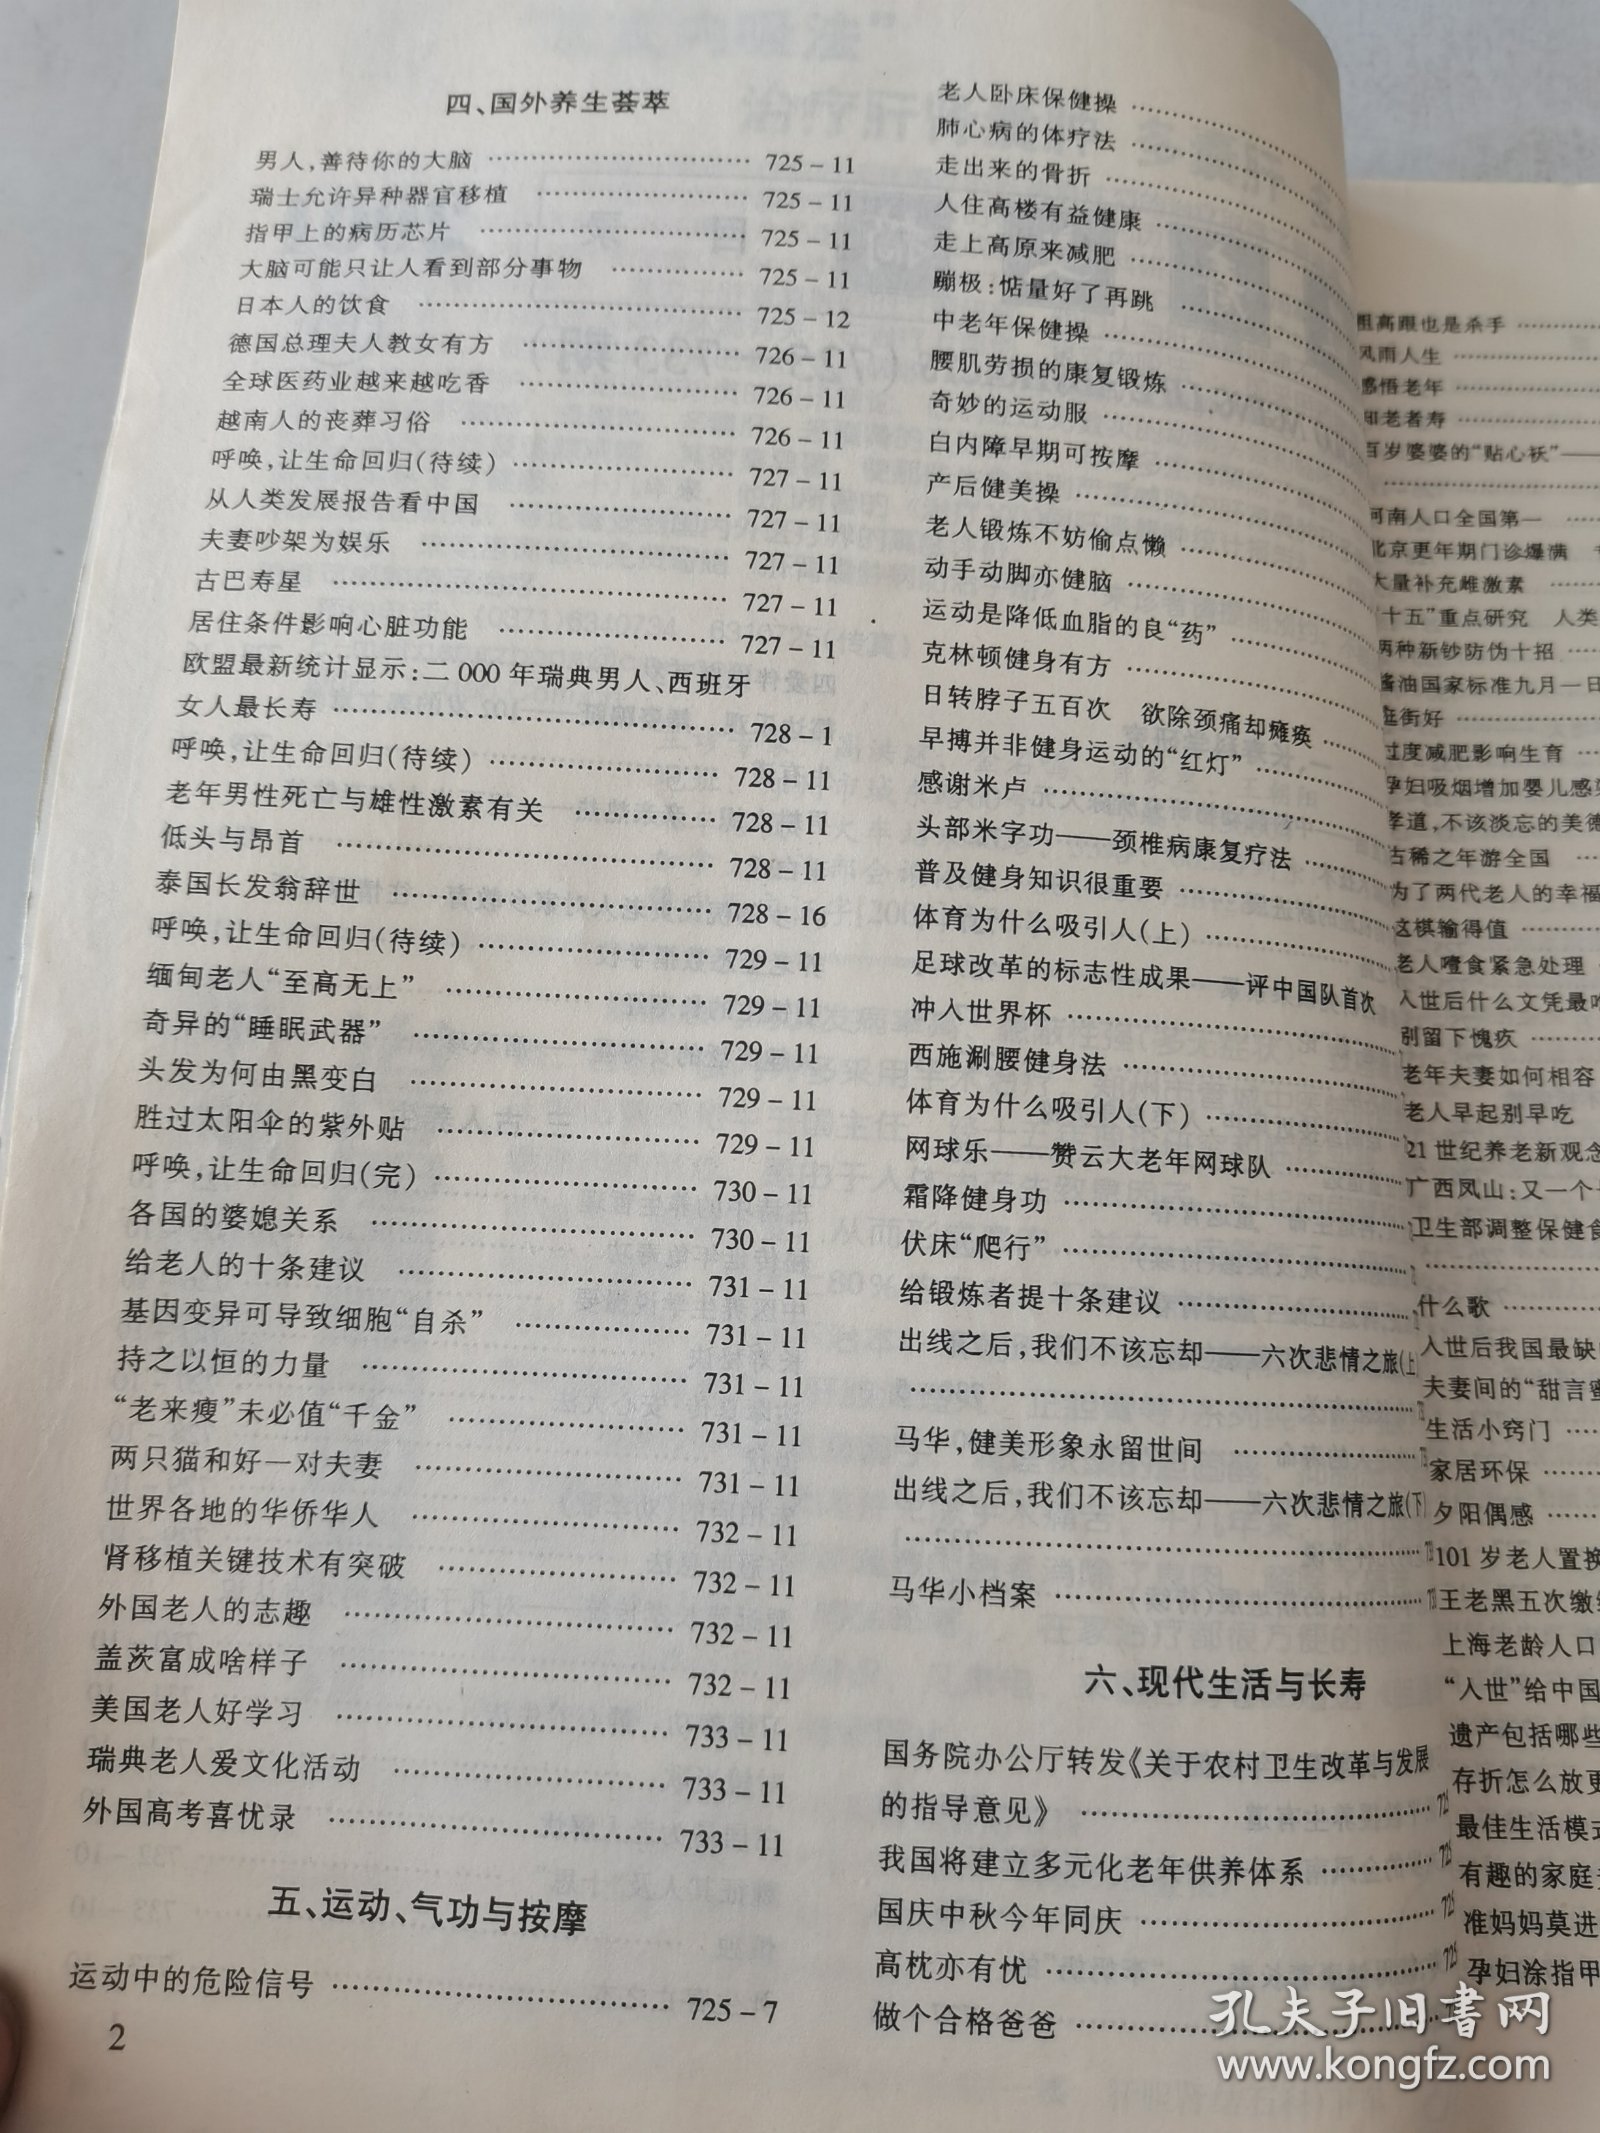 四、国外养生荟萃
男人,善待你的大脑 ………………………… 725-11
瑞士允许异种器官移植 …………………… 725-11
指甲上的病历芯片 ………………………… 725-11
大脑可能只让人看到部分事物 …………… 725-11
日本人的饮食 ……………………………… 725-12
德国总理夫人教女有方 …………………… 726-11
全球医药业越来越吃香 …………………… 726-11
越南人的丧葬习俗 ………………………… 726-11
呼唤,让生命回归(待续) …………………… 727-11
从人类发展报告看中国 …………………… 727-11
夫妻吵架为娱乐 …………………………… 727-11
古巴寿星 …………………………………… 727-11
居住条件影响心脏功能 …………………… 727-11
欧盟最新统计显示:二000年瑞典男人、西班牙
女人最长寿 ………………………………… 728-1
呼唤,让生命回归(待续) …………………… 728-11
老年男性死亡与雄性激素有关 …………… 728-11
低头与昂首 ………………………………… 728-11
泰国长发翁辞世 …………………………… 728-16
呼唤,让生命回归(待续) …………………… 729-11
缅甸老人“至高无上” ……………………… 729-11
奇异的“睡眠武器” ………………………… 729-11
头发为何由黑变白 ………………………… 729-11
胜过太阳伞的紫外贴 ……………………… 729-11
呼唤,让生命回归(完) ……………………… 730-11
各国的婆媳关系 …………………………… 730-11
给老人的十条建议 ………………………… 731-11
基因变异可导致细胞“自杀” ……………… 731-11
持之以恒的力量 …………………………… 731-11
“老来瘦”未必值“千金” …………………… 731-11
两只猫和好一对夫妻 ……………………… 731-11
世界各地的华侨华人 ……………………… 732-11
肾移植关键技术有突破 …………………… 732-11
外国老人的志趣 …………………………… 732-11
盖茨富成啥样子 …………………………… 732-11
美国老人好学习 …………………………… 733-11
瑞典老人爱文化活动 ……………………… 733-11
外国高考喜忧录 …………………………… 733-11
五、运动、气功与按摩
运动中的危险信号 ………………………… 725-7
2
老人卧床保健操 ……………………
肺心病的体疗法 ……………………
走出来的骨折 ………………………
人住高楼有益健康 …………………
走上高原来减肥 ……………………
蹦极:惦量好了再跳 ………………
中老年保健操 ………………………
腰肌劳损的康复锻炼 ………………
奇妙的运动服 ………………………
白内障早期可按摩 …………………
产后健美操 …………………………
老人锻炼不妨偷点懒 ………………
动手动脚亦健脑 ……………………
运动是降低血脂的良“药” …………
克林顿健身有方 ……………………
日转脖子五百次 欲除颈痛却瘫痪 ……
早搏并非健身运动的“红灯” ………
感谢米卢 ……………………………
头部米字功——颈椎病康复疗法 ……
普及健身知识很重要 ………………
体育为什么吸引人(上) ……………
足球改革的标志性成果——评中国队首次
冲入世界杯 …………………………
西施涮腰健身法 ……………………
体育为什么吸引人(下) ……………
网球乐——赞云大老年网球队 ………
霜降健身功 …………………………
伏床“爬行” …………………………
给锻炼者提十条建议 ………………
出线之后,我们不该忘却——六次悲情之旅(上)
……………………………………
马华,健美形象永留世间 …………
出线之后,我们不该忘却——六次悲情之旅(下)
……………………………………
马华小档案 …………………………
六、现代生活与长寿
国务院办公厅转发《关于农村卫生改革与发展
的指导意见》 ………………………
我国将建立多元化老年供养体系 ……
国庆中秋今年同庆 …………………
高枕亦有忧 …………………………
做个合格爸爸 ………………………
高跟也是杀手 ………
风雨人生 ………
感悟老年 ………
和老者寿 ………
百岁婆婆的“贴心袄”——
………
河南人口全国第一 ……
北京更年期门诊爆满
大量补充雌激素 ……
“十五”重点研究 人类
两种新钞防伪十招 ……
酱油国家标准九月一日
逛街好 ………
过度减肥影响生育 ……
孕妇吸烟增加婴儿感染
孝道,不该淡忘的美德
古稀之年游全国 ……
为了两代老人的幸福
这棋输得值 ………
老人噎食紧急处理
入世后什么文凭最吃
别留下愧疚 ………
老年夫妻如何相容
老人早起别早吃
21世纪养老新观念
广西凤山:又一个
卫生部调整保健食
………
什么歌 ………
入世后我国最缺
夫妻间的“甜言蜜
生活小窍门 ……
家居环保 ……
夕阳偶感 ……
101岁老人置换
王老黑五次缴
上海老龄人口
“入世”给中国
遗产包括哪些
存折怎么放更
最佳生活模式
有趣的家庭
准妈妈莫进
孕妇涂指甲
孔夫子旧书网
www.kongfz.com